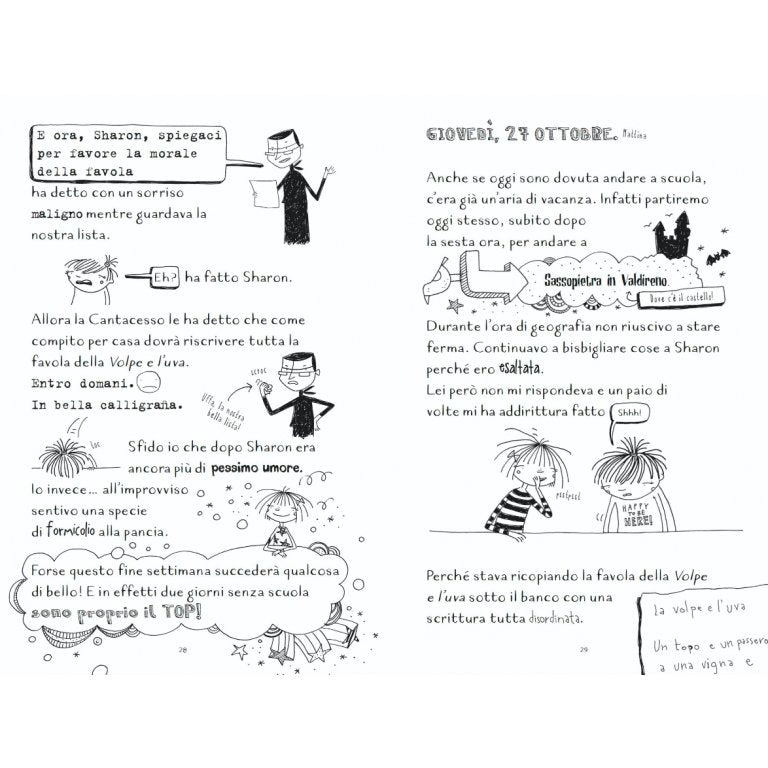 E ora, Sharon, spiegaci
per favore la morale
della favola
ha detto con un sorriso
maligno mentre guardava la
nostra lista.
Eh?
ha fatto Sharon.
Allora la Cantacesso le ha detto che come
compito per casa dovrà riscrivere tutta la
favola della Volpe e l'uva.
Entro domani.
In bella calligrafia.
Uffa, la nostra
bella lista!
Sfido io che dopo Sharon era
ancora più di pessimo umore.
Io invece... all'improvviso
sentivo una specie
di formicolio alla pancia.
Forse questo fine settimana succederà qualcosa
di bello! E in effetti due giorni senza scuola
sono proprio il TOP!
28
GIOVEDÌ, 27 OTTOBRE. Mattina
Anche se oggi sono dovuta andare a scuola,
c'era già un'aria di vacanza. Infatti partiremo
oggi stesso, subito dopo
la sesta ora, per andare a
Sassopietra in Valdireno.
Dove c'è il castello!
Durante l'ora di geografia non riuscivo a stare
ferma. Continuavo a bisbigliare cose a Sharon
perché ero esaltata.
Lei però non mi rispondeva e un paio di
volte mi ha addirittura fatto
Shhh!
psstpsst
HAPPY
TO BE
HERE!
Perché stava ricopiando la favola della Volpe
e l'uva sotto il banco con una
scrittura tutta disordinata.
la volpe e l'uva
Un topo e un passero
a una vigna e
29